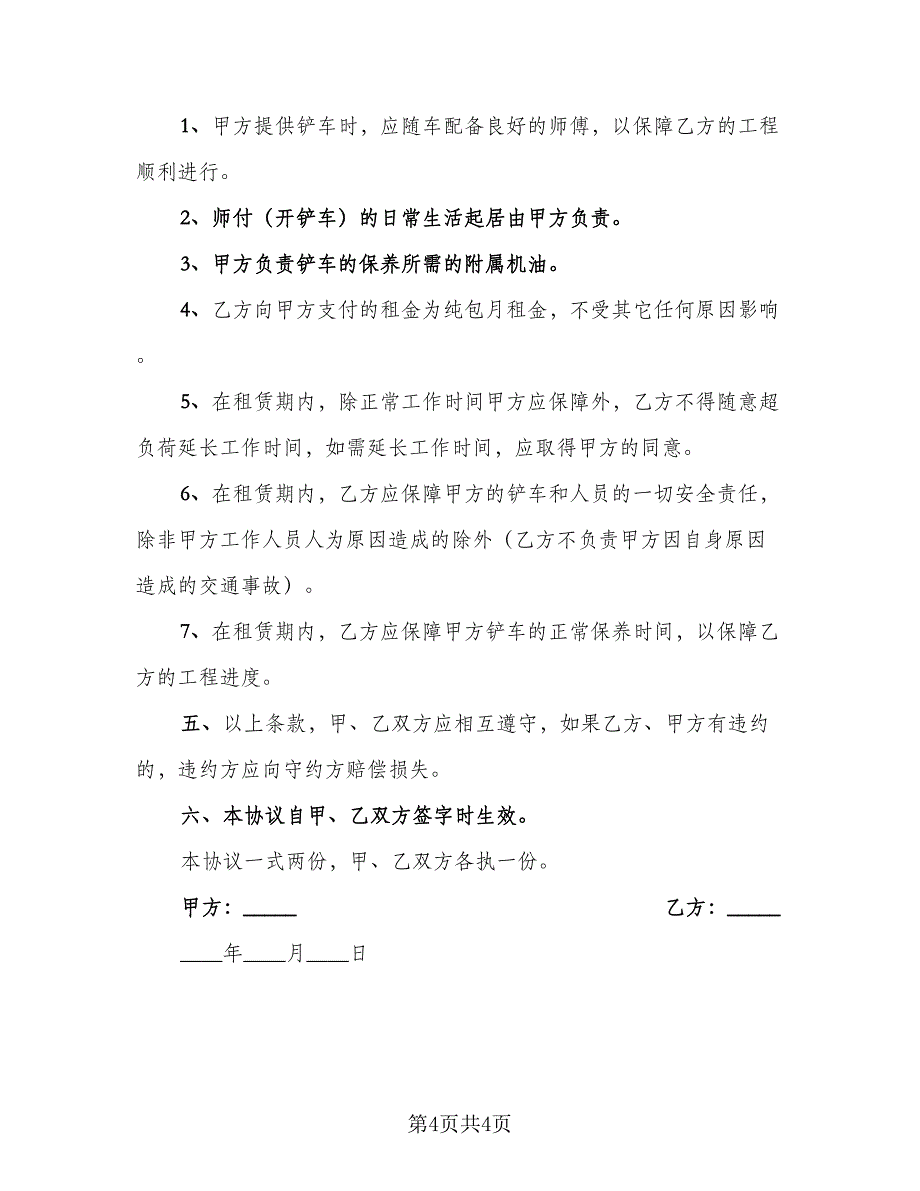 1、甲方提供铲车时，应随车配备良好的师傅，以保障乙方的工程
顺利进行。
2、师付（开铲车）的日常生活起居由甲方负责。
3、甲方负责铲车的保养所需的附属机油。
4、乙方向甲方支付的租金为纯包月租金，不受其它任何原因影响
。
5、在租赁期内，除正常工作时间甲方应保障外，乙方不得随意超
负荷延长工作时间，如需延长工作时间，应取得甲方的同意。
6、在租赁期内，乙方应保障甲方的铲车和人员的一切安全责任，
除非甲方工作人员人为原因造成的除外（乙方不负责甲方因自身原因
造成的交通事故）。
7、在租赁期内，乙方应保障甲方铲车的正常保养时间，以保障乙
方的工程进度。
五、以上条款，甲、乙双方应相互遵守，如果乙方、甲方有违约
的，违约方应向守约方赔偿损失。
六、本协议自甲、乙双方签字时生效。
本协议一式两份，甲、乙双方各执一份。
甲方：_____ 乙方：_____
____年____月____日
第4页共4页